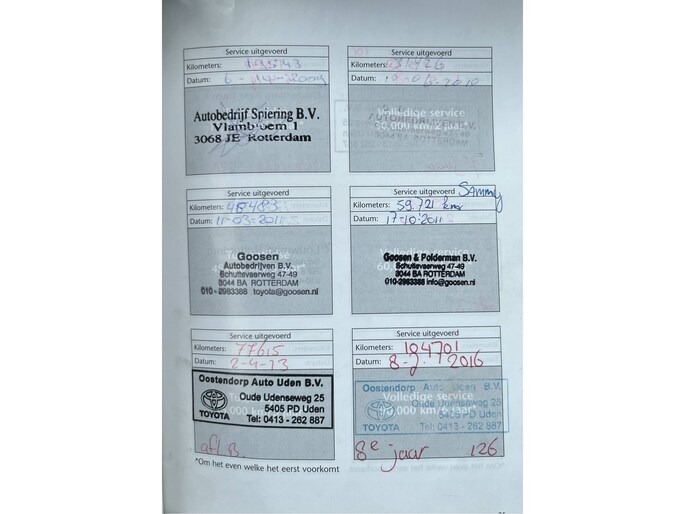 Service uitgevoerd
Kilometers:
Datum: 6
Autobedrijf Spiering B.V.
Vlambloem 1
3068 JE Rotterdam
Service uitgevoerd
Kilometers: 31926
Datum: 2010
Volledige service
Service uitgevoerd
Kilometers: 45483
Datum: 11-03-2011
Goosen
Autobedrijven B.V.
Schuttevaerweg 47-49
3044 BA ROTTERDAM
010-2983388 toyota@goosen.nl
Sammy
Service uitgevoerd
Kilometers: 59.721 kms
Datum: 17-10-2011
Volledige service
Goosen & Polderman B.V.
Schuttevaerweg 47-49
3044 BA ROTTERDAM
010-2983388 info@goosen.nl
Service uitgevoerd
Kilometers: 77615
Datum: 2-4-13
Oostendorp Auto Uden B.V.
Oude Udenseweg 25
5405 PD Uden
TOYOTA Tel: 0413 - 262 887
Service uitgevoerd
Kilometers: 104701
Datum: 2016
Oostendorp Auto Uden B.V.
Volledige service
Oude Udenseweg 25
5405 PD Uden
TOYOTA Tel: 0413 - 262 887
8e jaar 126
*Om het even welke het eerst voorkomt